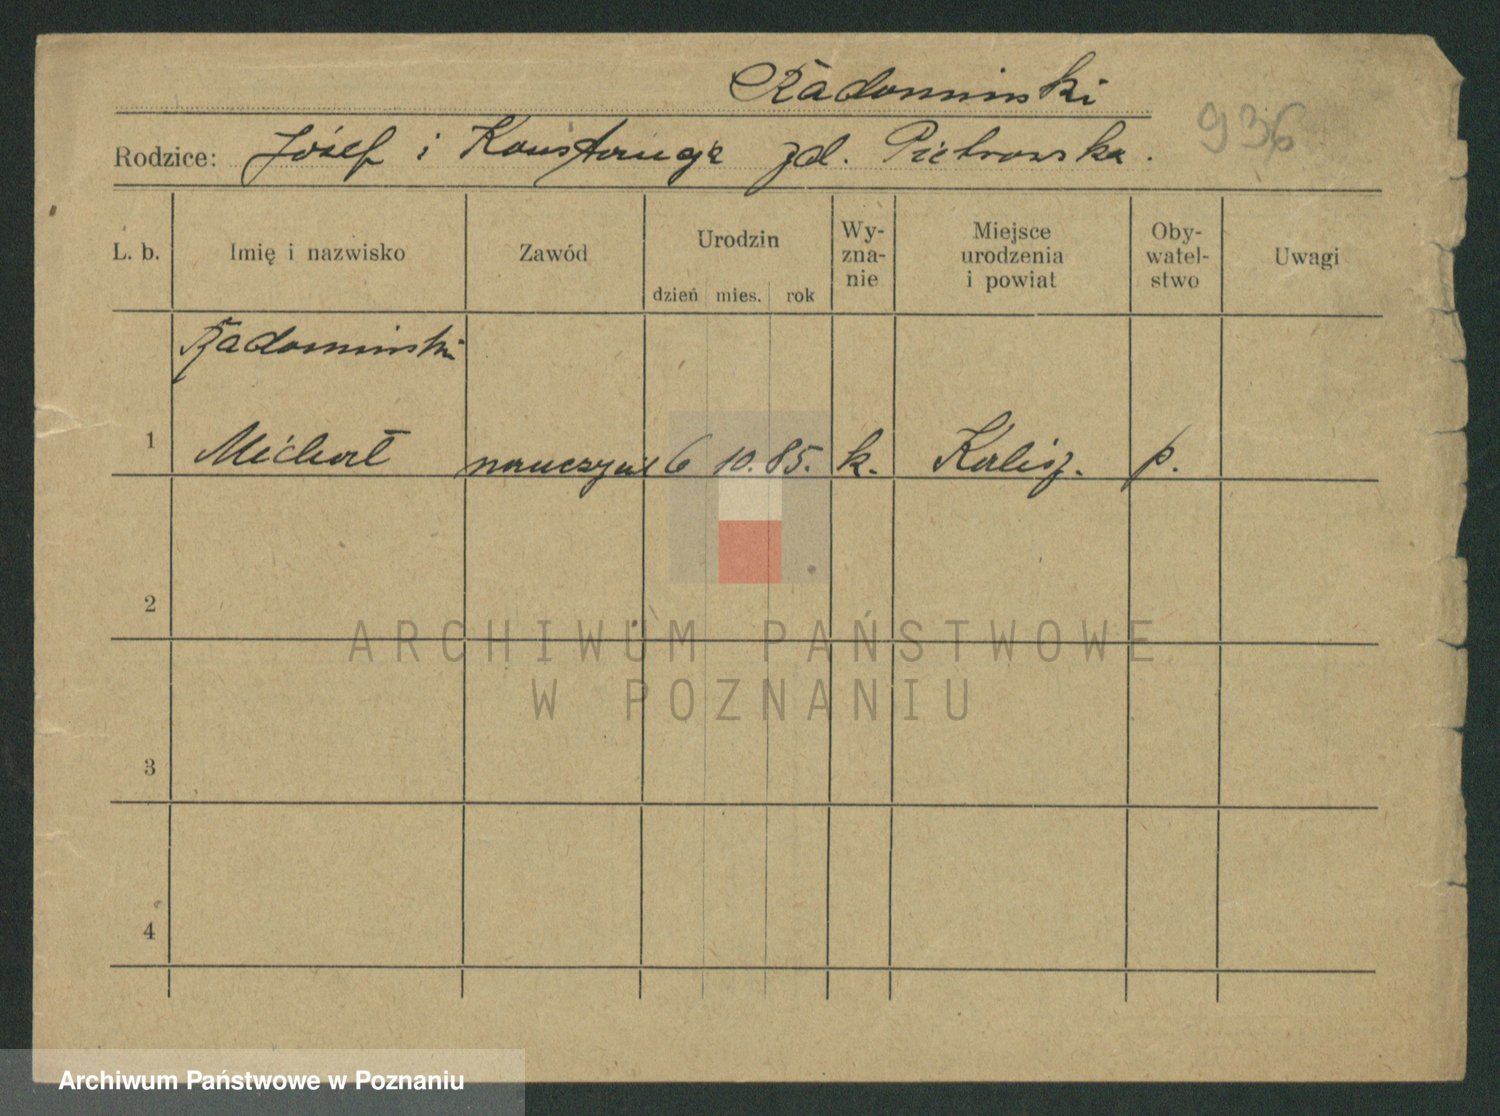 Radominski
936
Rodzice: Józef i Konstancja zd. Pietrowska.
L. b. Imię i nazwisko Zawód Urodzin dzień mies. rok Wy-zna-nie Miejsce urodzenia i powiat Oby-watel-stwo Uwagi
Radominski
1 Michał nauczyciel 6 10. 85. k. Kalisz. p.
2
ARCHIWUM PAŃSTWOWE
W POZNANIU
3
4
Archiwum Państwowe w Poznaniu